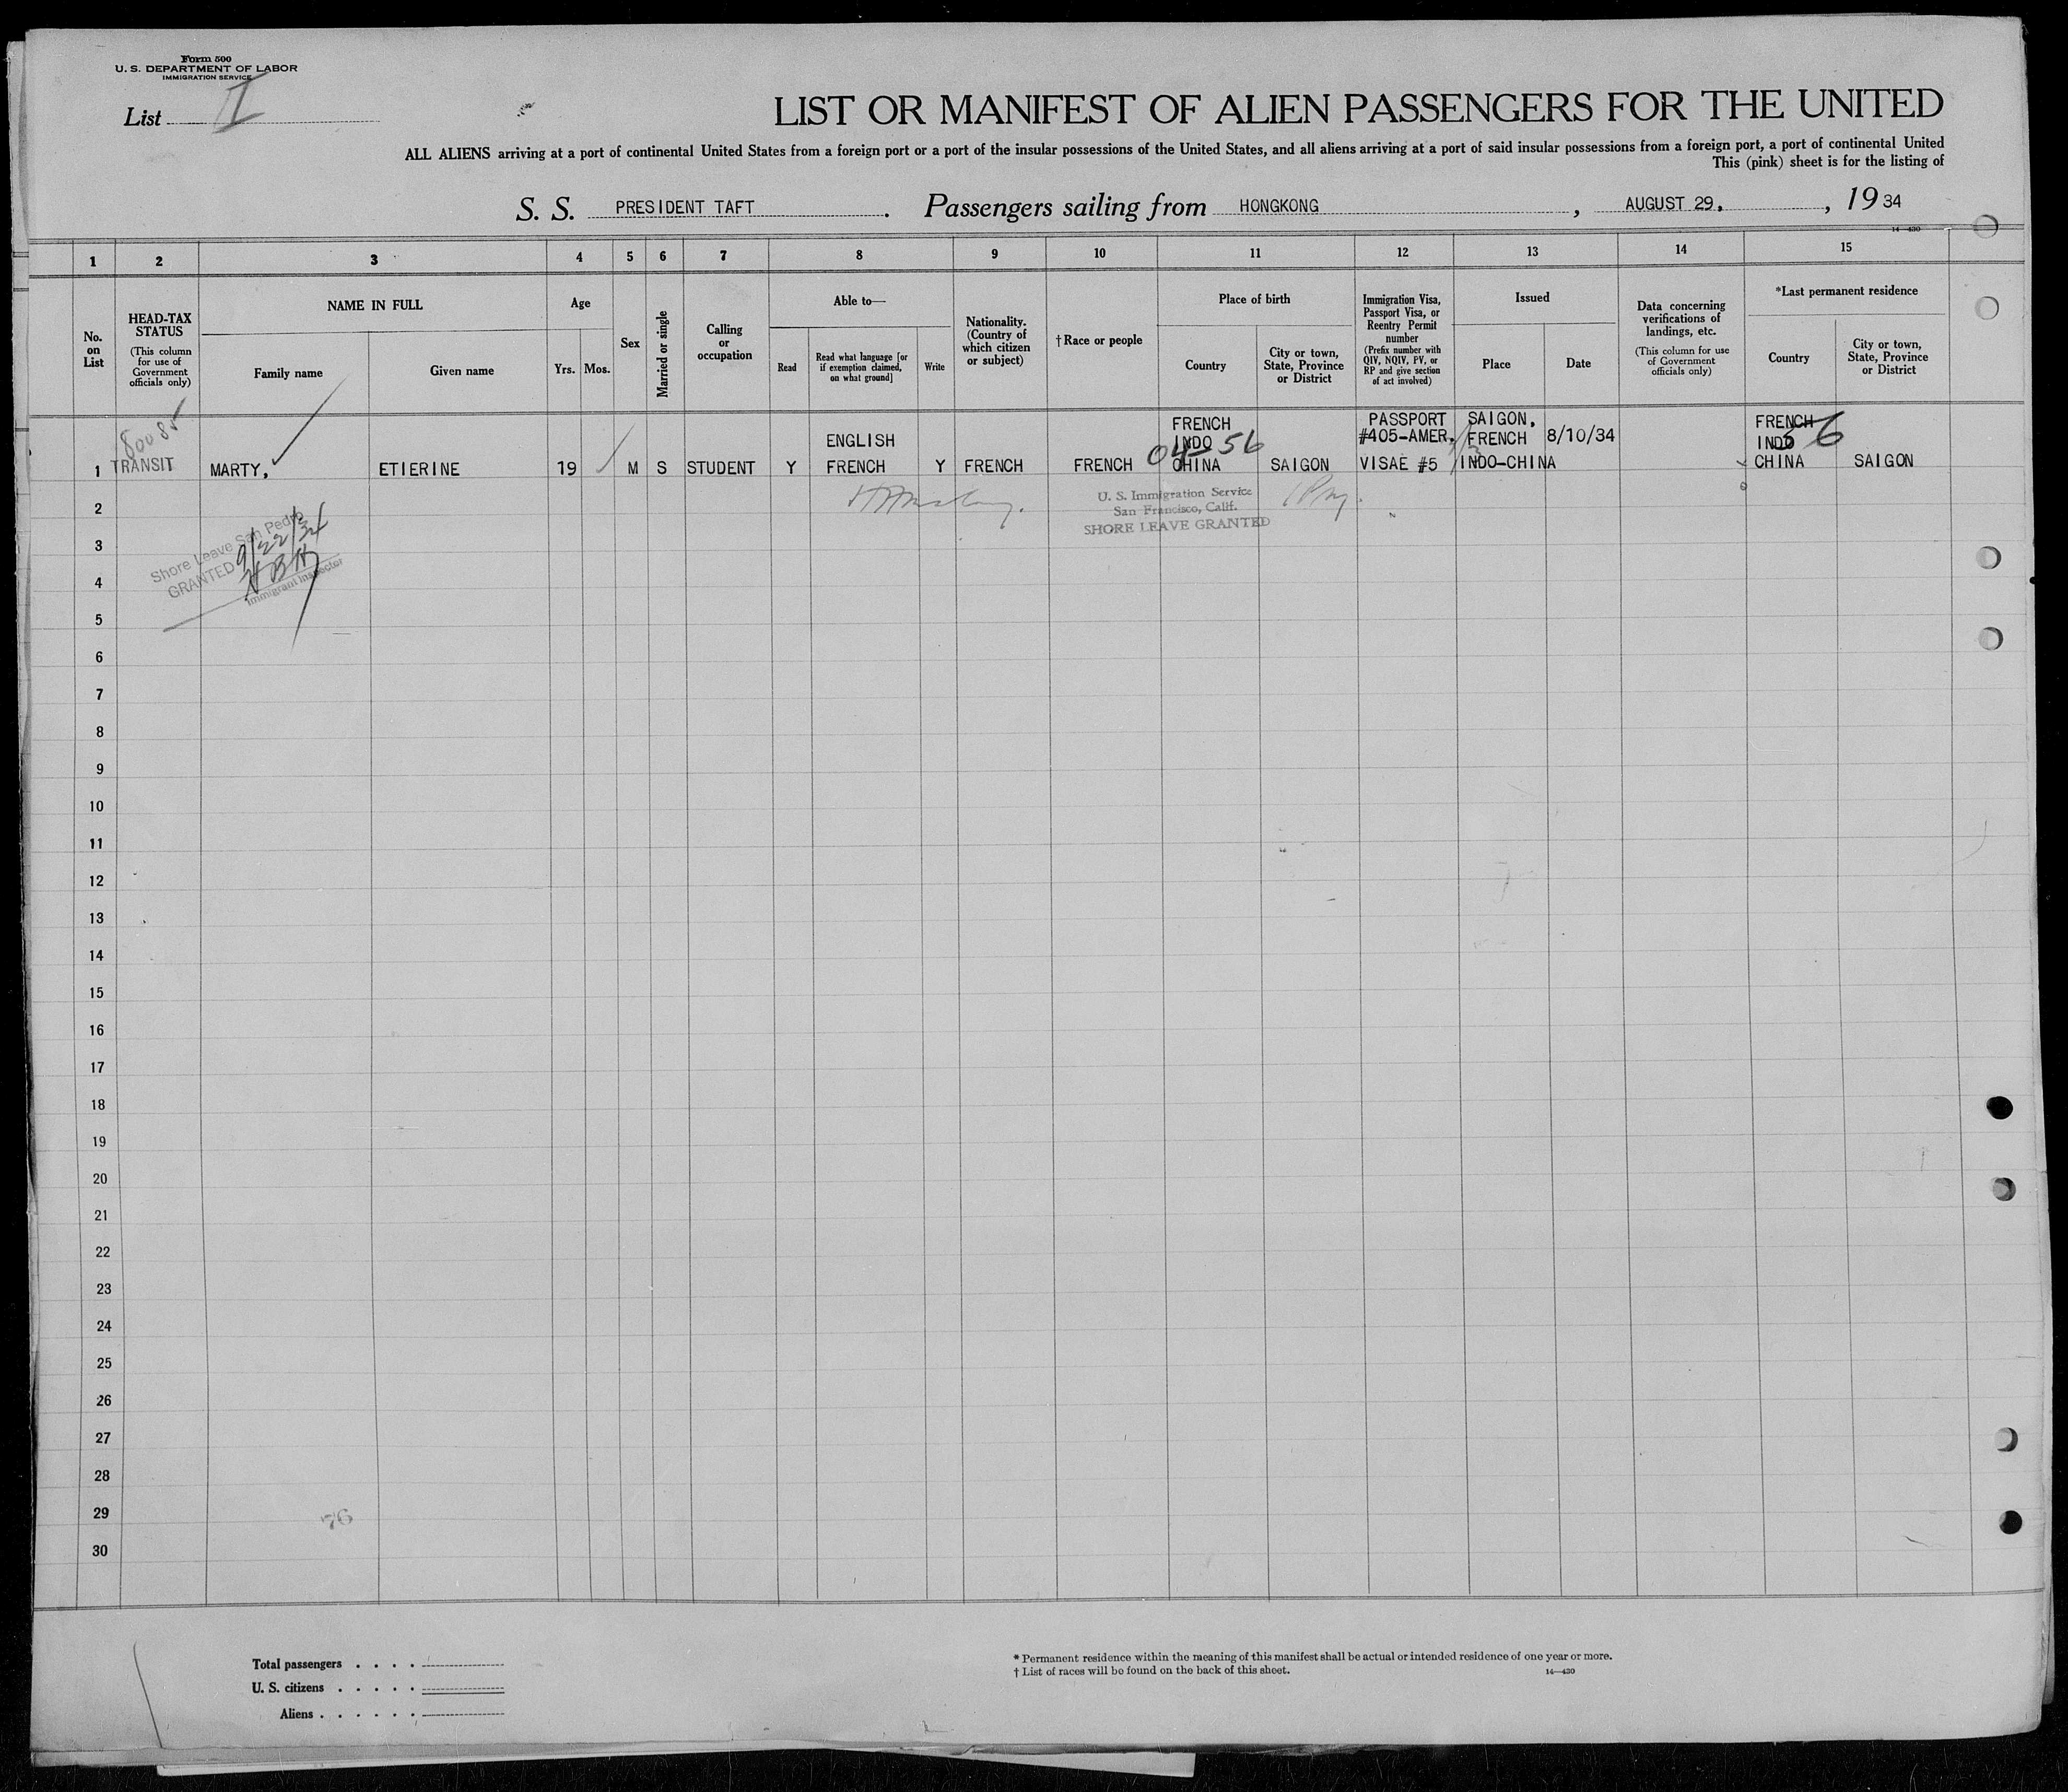 Form 500
U. S. DEPARTMENT OF LABOR
IMMIGRATION SERVICE
List I
LIST OR MANIFEST OF ALIEN PASSENGERS FOR THE UNITED
ALL ALIENS arriving at a port of continental United States from a foreign port or a port of the insular possessions of the United States, and all aliens arriving at a port of said insular possessions from a foreign port, a port of continental United
This (pink) sheet is for the listing of
S. S. PRESIDENT TAFT. Passengers sailing from HONGKONG, AUGUST 29, , 19 34
14—430
1 2 3 4 5 6 7 8 9 10 11 12 13 14 15
No. on List
HEAD-TAX STATUS
(This column for use of Government officials only)
NAME IN FULL
Family name
Given name
Age
Yrs.
Mos.
Sex
Married or single
Calling or occupation
Able to—
Read
Read what language [or if exemption claimed, on what ground]
Write
Nationality. (Country of which citizen or subject)
† Race or people
Place of birth
Country
City or town, State, Province or District
Immigration Visa, Passport Visa, or Reentry Permit number
(Prefix number with QIV, NQIV, PV, or RP and give section of act involved)
Issued
Place
Date
Data concerning verifications of landings, etc.
(This column for use of Government officials only)
*Last permanent residence
Country
City or town, State, Province or District
80085
FRENCH PASSPORT SAIGON, FRENCH
ENGLISH INDO #405-AMER. FRENCH 8/10/34 INDO
04 56
56
1 TRANSIT MARTY, ETIERINE 19 M S STUDENT Y FRENCH Y FRENCH FRENCH CHINA SAIGON VISAE #5 INDO-CHINA CHINA SAIGON
U. S. Immigration Service
San Francisco, Calif.
SHORE LEAVE GRANTED
Shore Leave San Pedro
GRANTED 9/22/34
HBH
Immigrant Inspector
2
3
4
5
6
7
8
9
10
11
12
13
14
15
16
17
18
19
20
21
22
23
24
25
26
27
28
29
76
30
Total passengers . . . .
U. S. citizens . . . . .
Aliens . . . . . .
* Permanent residence within the meaning of this manifest shall be actual or intended residence of one year or more.
† List of races will be found on the back of this sheet.
14—430